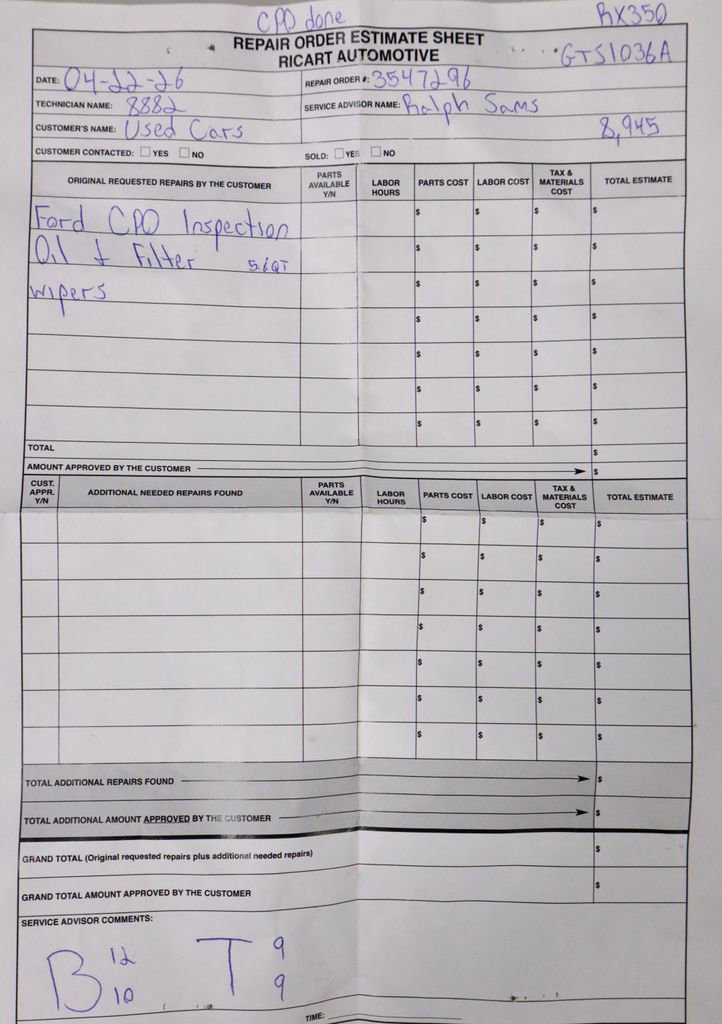 CPO done RX350
REPAIR ORDER ESTIMATE SHEET
RICART AUTOMOTIVE GTS1036A
DATE: 04-22-26 REPAIR ORDER #: 3547296
TECHNICIAN NAME: 8882 SERVICE ADVISOR NAME: Ralph Sams
CUSTOMER'S NAME: Used Cars 8,945
CUSTOMER CONTACTED: YES NO SOLD: YES NO
ORIGINAL REQUESTED REPAIRS BY THE CUSTOMER PARTS AVAILABLE Y/N LABOR HOURS PARTS COST LABOR COST TAX & MATERIALS COST TOTAL ESTIMATE
Ford CPO Inspection $ $ $ $
Oil & Filter 5.6QT $ $ $ $
wipers $ $ $ $
$ $ $ $
$ $ $ $
$ $ $ $
$ $ $ $
TOTAL $
AMOUNT APPROVED BY THE CUSTOMER $
CUST. APPR. Y/N ADDITIONAL NEEDED REPAIRS FOUND PARTS AVAILABLE Y/N LABOR HOURS PARTS COST LABOR COST TAX & MATERIALS COST TOTAL ESTIMATE
$ $ $ $
$ $ $ $
$ $ $ $
$ $ $ $
$ $ $ $
$ $ $ $
$ $ $ $
TOTAL ADDITIONAL REPAIRS FOUND $
TOTAL ADDITIONAL AMOUNT APPROVED BY THE CUSTOMER $
GRAND TOTAL (Original requested repairs plus additional needed repairs) $
GRAND TOTAL AMOUNT APPROVED BY THE CUSTOMER $
SERVICE ADVISOR COMMENTS:
B 12 T 9
10 9
TIME: